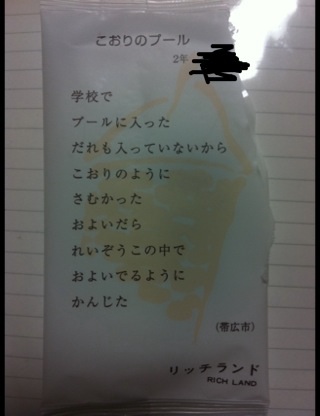 こおりのプール
2年
学校で
プールに入った
だれも入っていないから
こおりのように
さむかった
およいだら
れいぞうこの中で
およいでるように
かんじた
(帯広市)
リッチランド
RICH LAND